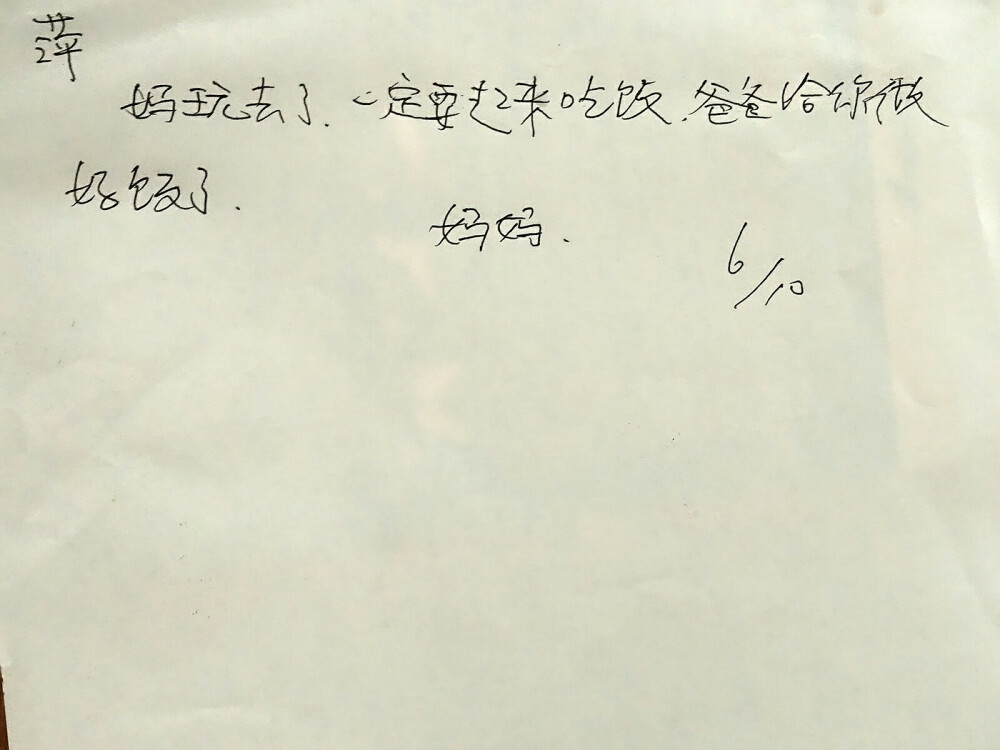 萍
妈玩去了.一定要起来吃饭.爸爸给你做
好饭了.
妈妈.
6/10